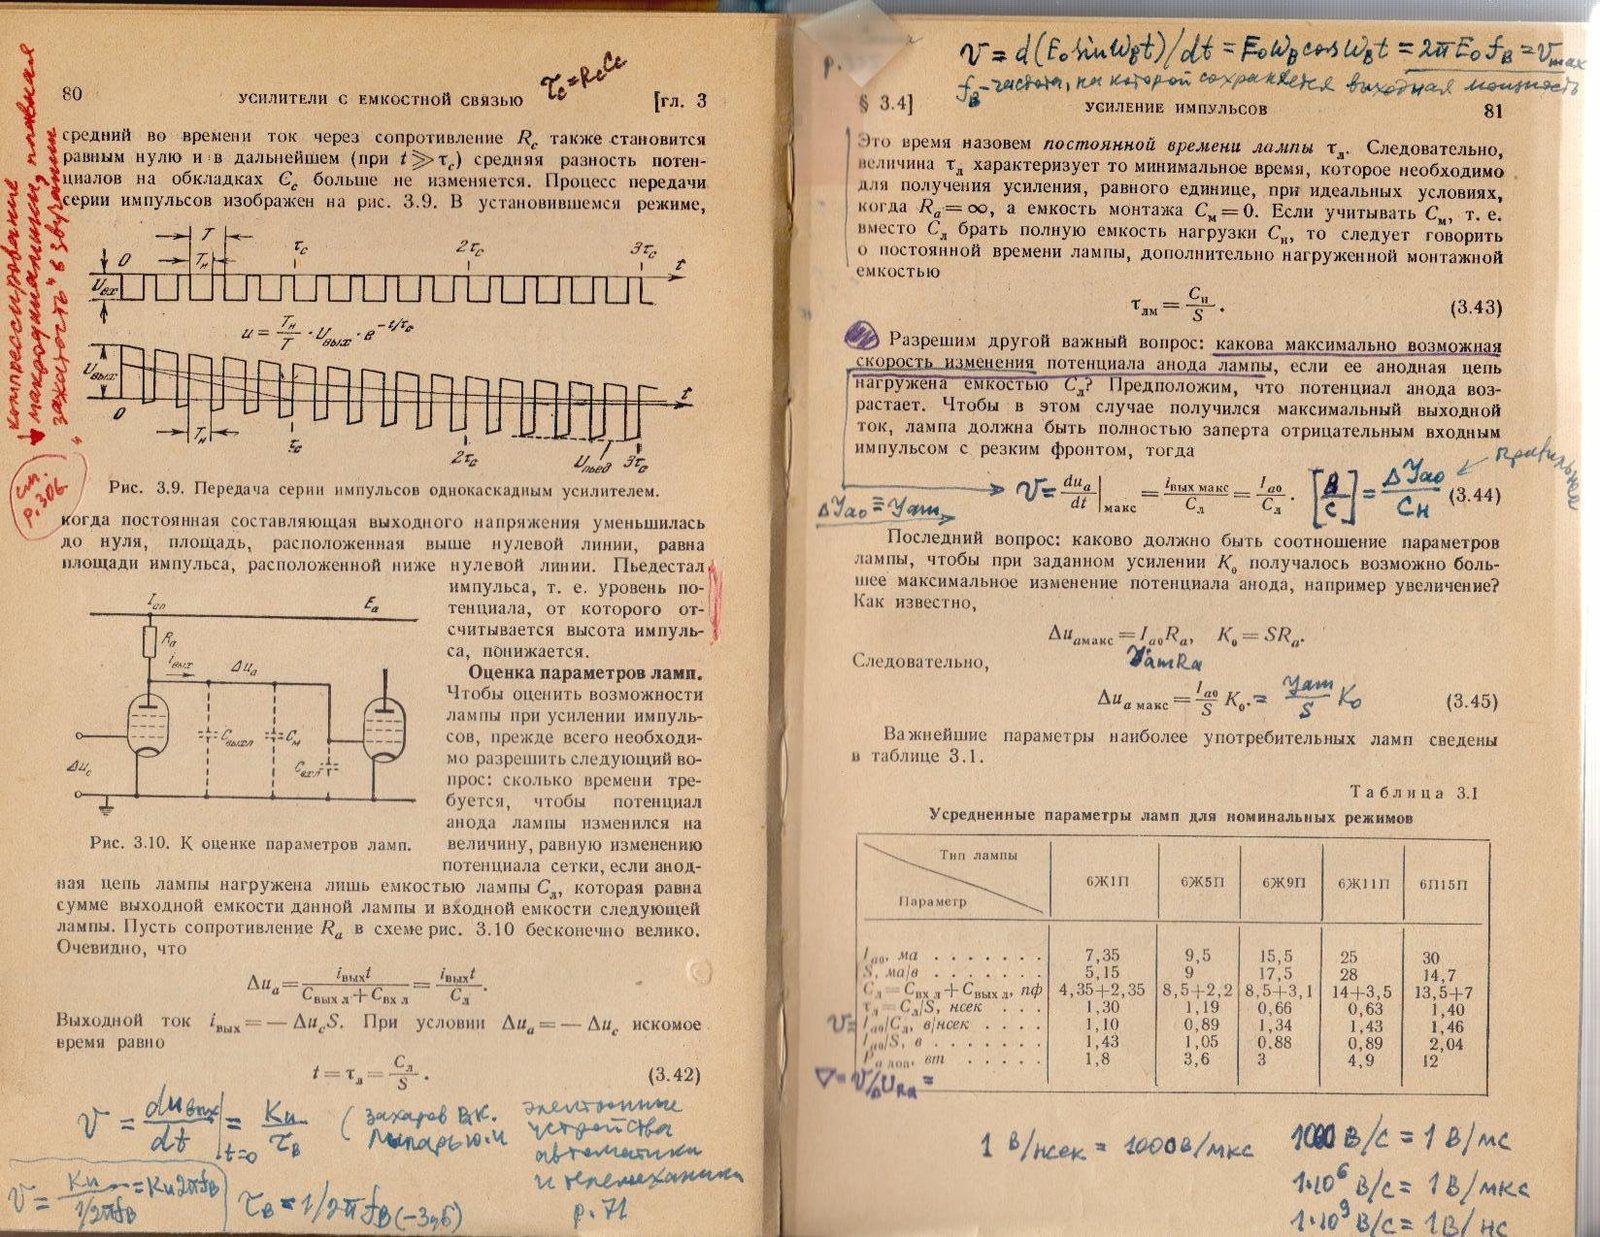 80 УСИЛИТЕЛИ С ЕМКОСТНОЙ СВЯЗЬЮ [гл. 3
τс = RcCc
средний во времени ток через сопротивление Rс также становится
равным нулю и в дальнейшем (при t ≫ τс) средняя разность потен-
циалов на обкладках Cс больше не изменяется. Процесс передачи
серии импульсов изображен на рис. 3.9. В установившемся режиме,
T
0 Tн τс 2τс 3τс t
Uвх
u = Tн/T · Uвых · e^(−t/τс)
Uвых
0 Tн τс 2τс Uпьед 3τс t
компрессирование
макродинамики, плавная
"зажатость" в звучании
см.
р.306
Рис. 3.9. Передача серии импульсов однокаскадным усилителем.
когда постоянная составляющая выходного напряжения уменьшилась
до нуля, площадь, расположенная выше нулевой линии, равна
площади импульса, расположенной ниже нулевой линии. Пьедестал
импульса, т. е. уровень по-
тенциала, от которого от-
считывается высота импуль-
са, понижается.
Iао Eа
Rа
iвых Δuа
Cвых л Cм
Cвх л
Δuс
Рис. 3.10. К оценке параметров ламп.
Оценка параметров ламп.
Чтобы оценить возможности
лампы при усилении импуль-
сов, прежде всего необходи-
мо разрешить следующий во-
прос: сколько времени тре-
буется, чтобы потенциал
анода лампы изменился на
величину, равную изменению
потенциала сетки, если анод-
ная цепь лампы нагружена лишь емкостью лампы Cл, которая равна
сумме выходной емкости данной лампы и входной емкости следующей
лампы. Пусть сопротивление Rа в схеме рис. 3.10 бесконечно велико.
Очевидно, что
Δuа = iвыхt/(Cвых л + Cвх л) = iвыхt/Cл.
Выходной ток iвых = — ΔuсS. При условии Δuа = — Δuс искомое
время равно
t = τл = Cл/S. (3.42)
v = duвых/dt |t=0 = Kи/τв
( Захаров В.К.
Лыпарь Ю.И
электронные
устройства
автоматики
и телемеханики
р.71
v = Kи/(1/2πfв) = Kи2πfв
τв = 1/2πfв(−3дб)
v = d(E₀sinωвt)/dt = E₀ωвcosωвt = 2πE₀fв = vmax
fв - частота, на которой сохраняется выходная мощность
§ 3.4] УСИЛЕНИЕ ИМПУЛЬСОВ 81
Это время назовем постоянной времени лампы τл. Следовательно,
величина τл характеризует то минимальное время, которое необходимо
для получения усиления, равного единице, при идеальных условиях,
когда Rа = ∞, а емкость монтажа Cм = 0. Если учитывать Cм, т. е.
вместо Cл брать полную емкость нагрузки Cн, то следует говорить
о постоянной времени лампы, дополнительно нагруженной монтажной
емкостью
τлм = Cн/S. (3.43)
Разрешим другой важный вопрос: какова максимально возможная
скорость изменения потенциала анода лампы, если ее анодная цепь
нагружена емкостью Cл? Предположим, что потенциал анода воз-
растает. Чтобы в этом случае получился максимальный выходной
ток, лампа должна быть полностью заперта отрицательным входным
импульсом с резким фронтом, тогда
v = duа/dt |макс = iвых макс/Cл = Iао/Cл. [В/с] = ΔJao/Cн (3.44)
ΔJao ≡ Jam
Последний вопрос: каково должно быть соотношение параметров
лампы, чтобы при заданном усилении K₀ получалось возможно боль-
шее максимальное изменение потенциала анода, например увеличение?
Как известно,
Δuа макс = Iа0Rа, K₀ = SRа.
JamRa
Следовательно,
Δuа макс = Iа0/S K₀. = Jam/S K₀ (3.45)
Важнейшие параметры наиболее употребительных ламп сведены
в таблице 3.1.
Таблица 3.1
Усредненные параметры ламп для номинальных режимов
Тип лампы
Параметр 6Ж1П 6Ж5П 6Ж9П 6Ж11П 6П15П
Iа0, ма 7,35 9,5 15,5 25 30
S, ма/в 5,15 9 17,5 28 14,7
Cл = Cвх л + Cвых л, пф 4,35+2,35 8,5+2,2 8,5+3,1 14+3,5 13,5+7
τл = Cл/S, нсек 1,30 1,19 0,66 0,63 1,40
v = Iа0/Cл, в/нсек 1,10 0,89 1,34 1,43 1,46
Iа0/S, в 1,43 1,05 0.88 0,89 2,04
Pа доп, вт 1,8 3,6 3 4,9 12
∇ = v/ΔURa =
1 В/нсек = 1000В/мкс
1000 В/с = 1 В/мс
1·10⁶ В/с = 1В/мкс
1·10⁹ В/с = 1В/нс